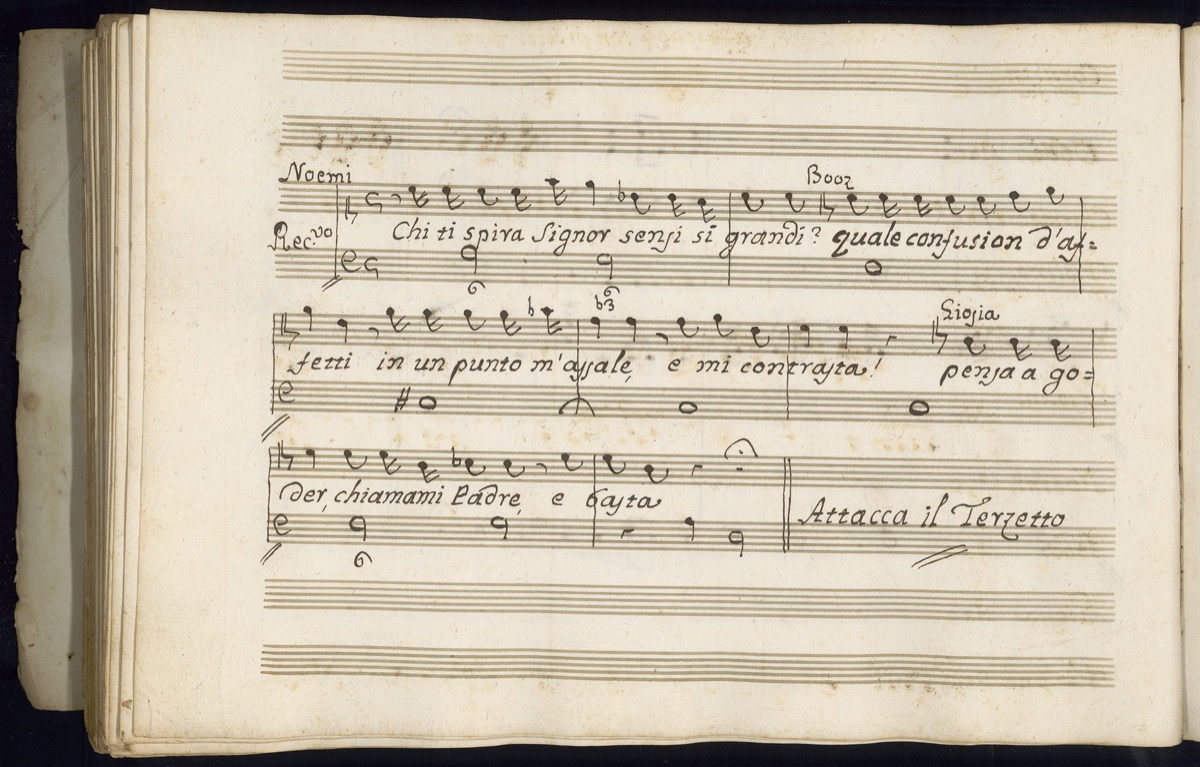 Noemi
Booz
Rec.vo
Chi ti spira Signor sensi sì grandi? quale confusion d'af=
6
6
b3
Giosia
fetti in un punto m'assale, e mi contrasta! pensa a go=
der, chiamami Padre, e basta
Attacca il Terzetto
6